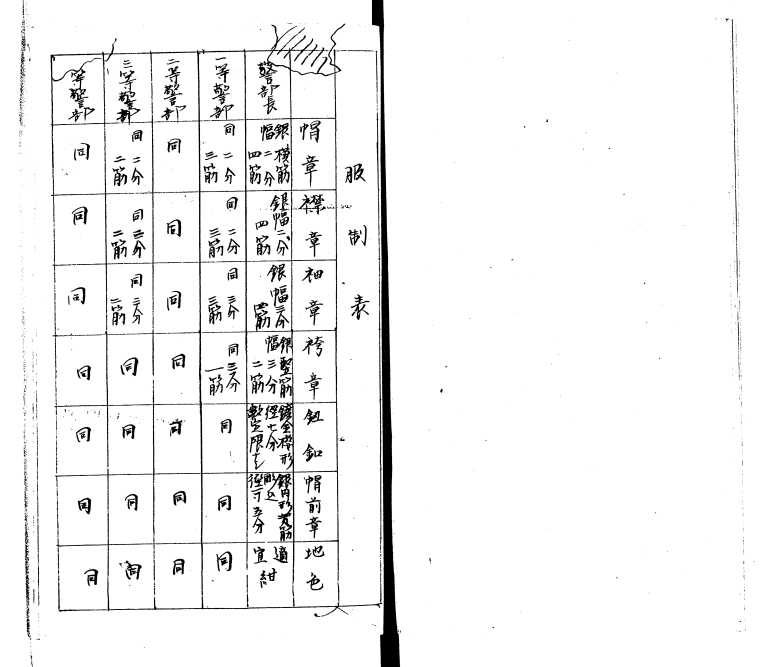 服制表
帽章
襟章
袖章
袴章
釦
帽前章
地色
警部長
銀横筋
幅二分
四筋
銀幅二分
四筋
銀幅三分
四筋
銀竪筋
幅三分
二筋
鍍金桜形
径七分
銀円形
径寸五分
適宜紺
一等警部
同二分
三筋
同二分
三筋
同三分
三筋
同三分
一筋
同
同
同
二等警部
同
同
同
同
同
同
同
三等警部
同二分
二筋
同二分
二筋
同三分
二筋
同
同
同
同
等警部
同
同
同
同
同
同
同